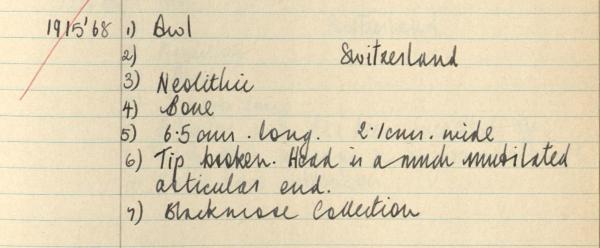 1915'68 1) Awl
2) Switzerland
3) Neolithic
4) Bone
5) 6.5cms. long. 2.1cms. wide
6) Tip broken. Head is a much mutilated
articular end.
7) Blackmore Collection